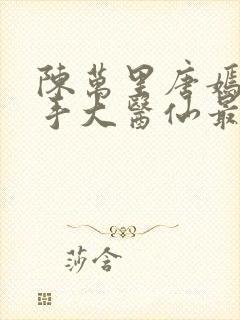 陳萬里唐嫣
手大醫仙最
莎含